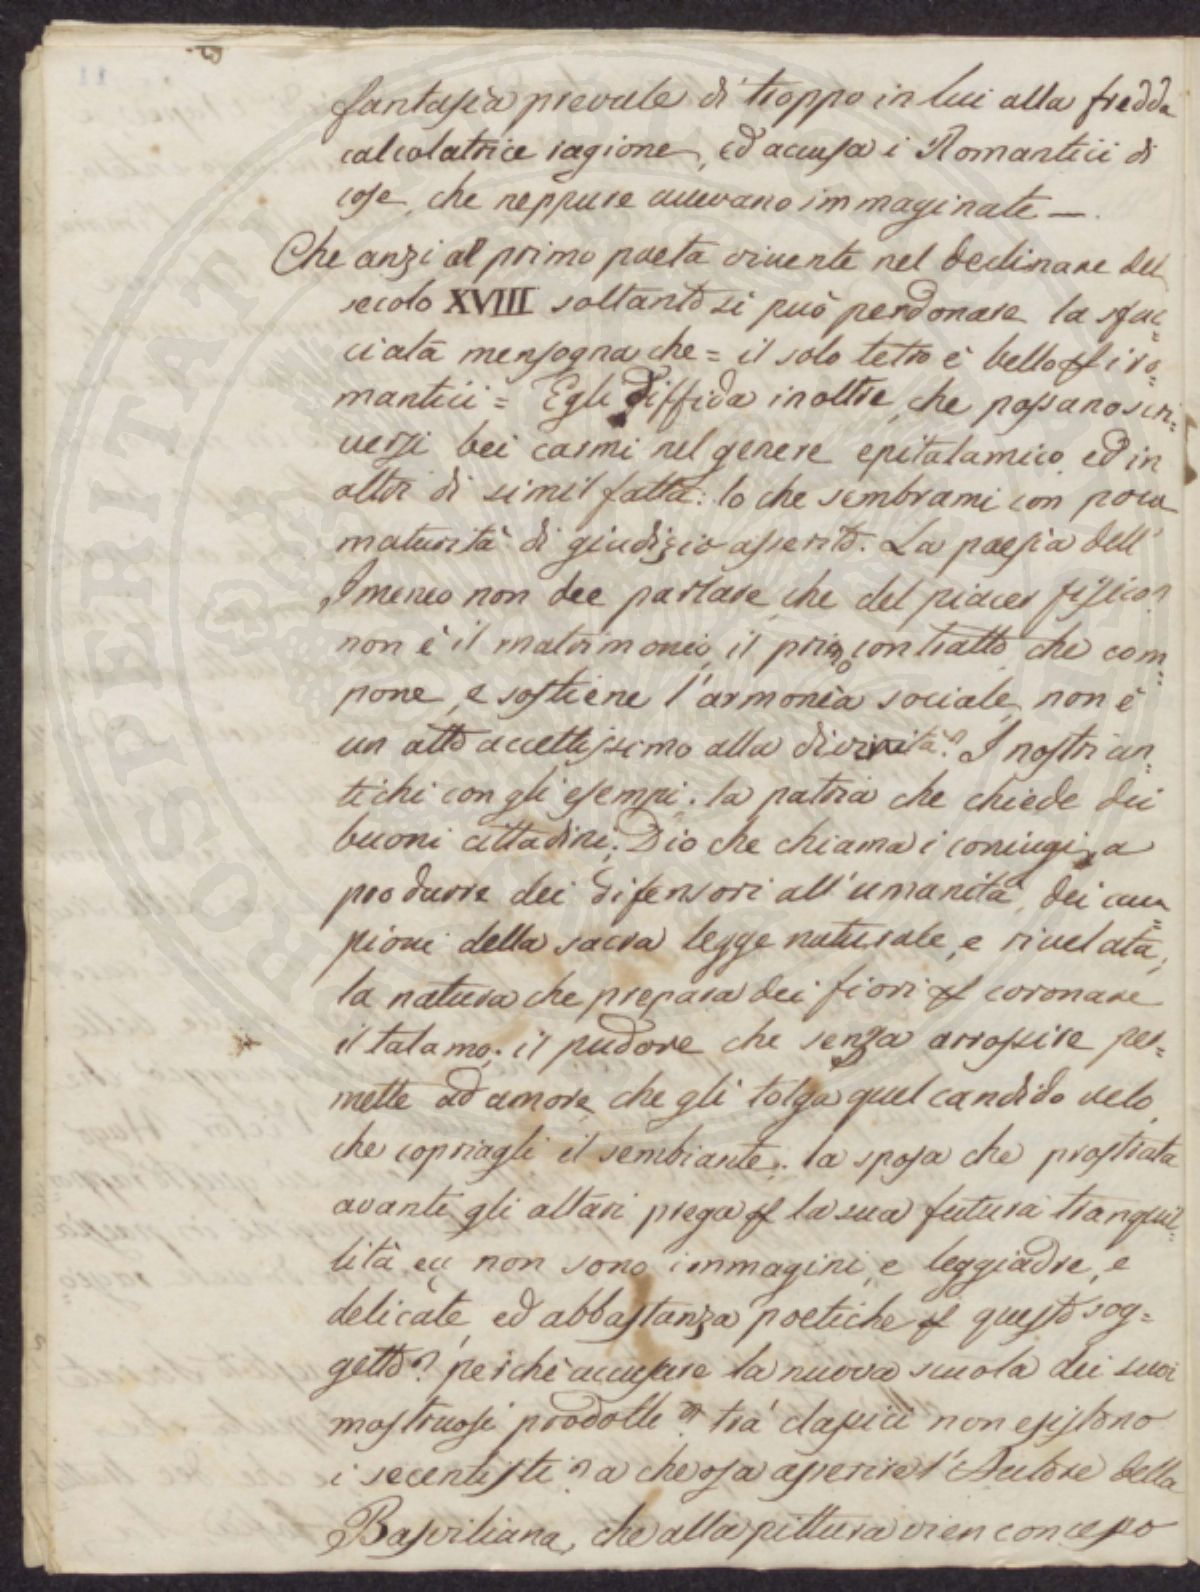 fantasia prevale di troppo in lui alla fredda
calcolatrice ragione, ed accusa i Romantici di
cose, che neppure avevano immaginate —.
Che anzi al primo poeta vivente nel declinare del
secolo XVIII soltanto si può perdonare la sfac=
ciata menzogna che = il solo tetro è bello p i ro=
mantici = Egli diffida inoltre, che possano scri=
versi bei carmi nel genere epitalamico, ed in
altri di simil fatta: lo che sembrami con poca
maturità di giudizio asserito. La poesia dell'
Imeneo non dee parlare, che del piacer fisico?
non è il matrimonio il primo contratto che com=
pone, e sostiene l'armonia sociale, non è
un atto accettissimo alla divinità? I nostri an=
tichi con gli esempi: la patria che chiede dei
buoni cittadini: Dio che chiama i coniugi a
produrre dei difensori all'umanità, dei cam=
pioni della sacra legge naturale, e rivelata;
la natura che prepara dei fiori p coronare
il talamo: il pudore che senza arrossire per=
mette ad amore, che gli tolga quel candido velo
che copriagli il sembiante: la sposa che prostrata
avanti gli altari prega p la sua futura tranquil=
lità ec. non sono immagini, e leggiadre, e
delicate, ed abbastanza poetiche p questo sog=
getto? perchè accusare la nuova scuola dei suoi
mostruosi prodotti? trà classici non esistono
i secentisti? a che osa asserire l'Autore della
Basviliana, che alla pittura vien concesso